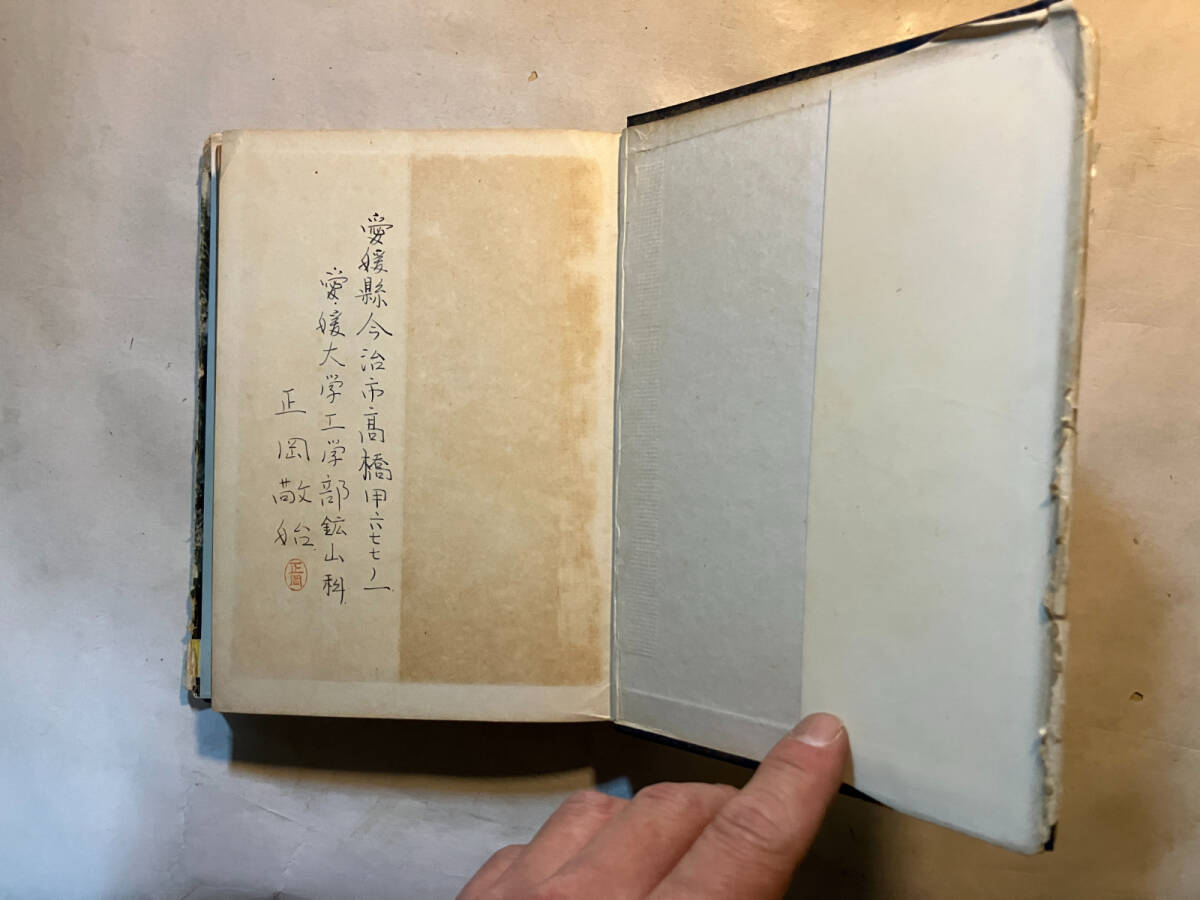 愛媛縣今治市高橋甲六七七ノ一
愛媛大学工学部鉱山科
正岡敬始
正岡